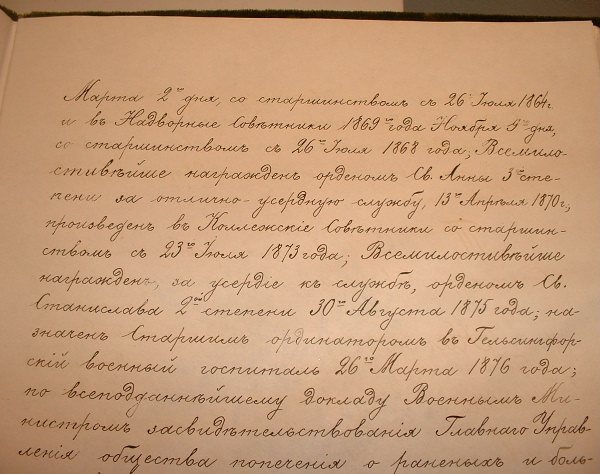 Марта 2го дня, со старшинствомъ съ 26 Іюля 1864 г.
и въ Надворные Совѣтники 1869 года Ноября 9го дня,
со старшинствомъ съ 26го Іюля 1868 года; Всемило-
стивѣйше награжденъ орденомъ Св. Анны 3й сте-
пени за отлично-усердную службу, 13го Апрѣля 1870 г.;
произведенъ въ Коллежскіе Совѣтники со старшин-
ствомъ съ 23го Іюля 1873 года; Всемилостивѣйше
награжденъ, за усердіе къ службѣ, орденомъ Св.
Станислава 2й степени 30го Августа 1875 года; на-
значенъ Старшимъ ординаторомъ въ Гельсингфор-
скій военный госпиталь 26го Марта 1876 года;
по всеподданнѣйшему докладу Военнымъ Ми-
нистромъ засвидѣтельствованія Главнаго Управ-
ленія общества попеченія о раненыхъ и боль-